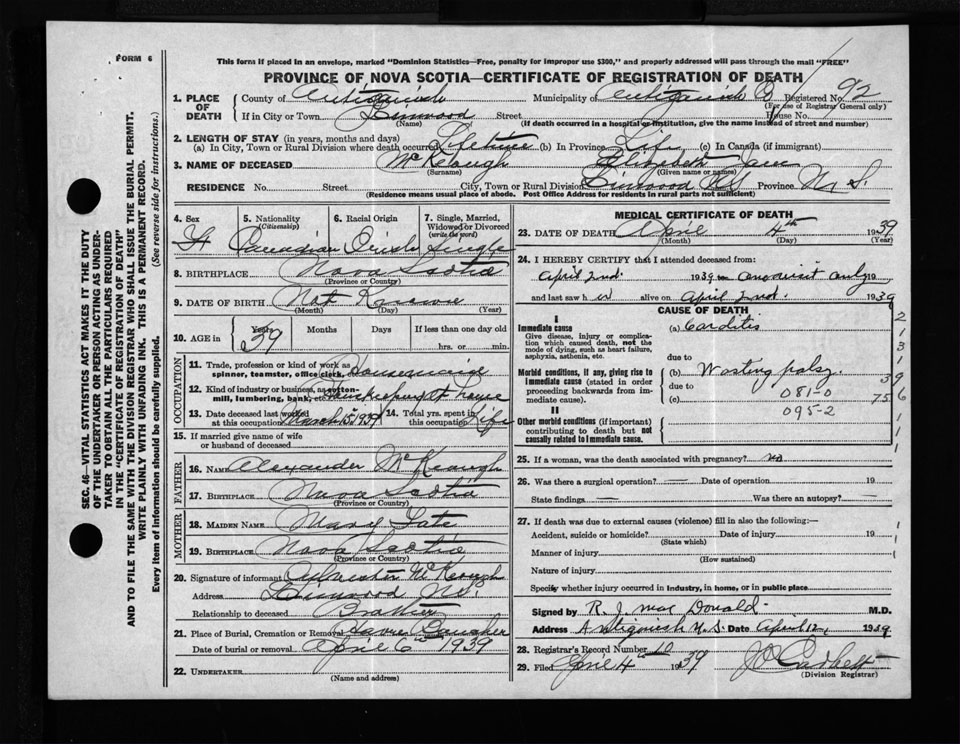 FORM 6
This form if placed in an envelope, marked "Dominion Statistics—Free, penalty for improper use $300," and properly addressed will pass through the mail "FREE"
PROVINCE OF NOVA SCOTIA—CERTIFICATE OF REGISTRATION OF DEATH
SEC. 46—VITAL STATISTICS ACT MAKES IT THE DUTY
OF THE UNDERTAKER OR PERSON ACTING AS UNDER-
TAKER TO OBTAIN ALL THE PARTICULARS REQUIRED
IN THE "CERTIFICATE OF REGISTRATION OF DEATH"
AND TO FILE THE SAME WITH THE DIVISION REGISTRAR WHO SHALL ISSUE THE BURIAL PERMIT.
WRITE PLAINLY WITH UNFADING INK. THIS IS A PERMANENT RECORD.
Every item of information should be carefully supplied. (See reverse side for instructions.)
1. PLACE OF DEATH County of Antigonish Municipality of Antigonish Co Registered No. 92
(For use of Registrar General only)
If in City or Town Linwood Street House No.
(Name) (If death occurred in a hospital or institution, give the name instead of street and number)
2. LENGTH OF STAY (in years, months and days)
(a) In City, Town or Rural Division where death occurred Lifetime (b) In Province Life (c) In Canada (if immigrant)
3. NAME OF DECEASED McKeough Elizabeth Jane
(Surname) (Given name or names)
RESIDENCE No. Street City, Town or Rural Division Linwood Province N. S.
(Residence means usual place of abode. Post Office Address for residents in rural parts not sufficient)
4. Sex 5. Nationality (Citizenship) 6. Racial Origin 7. Single, Married, Widowed or Divorced (write the word)
F Canadian Irish Single
8. BIRTHPLACE Nova Scotia
(Province or Country)
9. DATE OF BIRTH Not Known
(Month) (Day) (Year)
10. AGE in Years Months Days If less than one day old
59 hrs. or min.
OCCUPATION
11. Trade, profession or kind of work as spinner, teamster, office clerk, Housemaid
12. Kind of industry or business, as cotton-mill, lumbering, bank, etc. Housekeeping at House
13. Date deceased last worked at this occupation March 15 1939 14. Total yrs. spent in this occupation Life
15. If married give name of wife or husband of deceased
FATHER
16. NAME Alexander McKeough
17. BIRTHPLACE Nova Scotia
(Province or Country)
MOTHER
18. MAIDEN NAME Mary
19. BIRTHPLACE Nova Scotia
(Province or Country)
20. Signature of informant Sylvester McKeough
Address Linwood N.S.
Relationship to deceased Brother
21. Place of Burial, Cremation or Removal Havre Boucher
Date of burial or removal April 6th 1939
22. UNDERTAKER
(Name and address)
MEDICAL CERTIFICATE OF DEATH
23. DATE OF DEATH April 4th 1939
(Month) (Day) (Year)
24. I HEREBY CERTIFY that I attended deceased from:
April 2nd. 1939 — one visit only 19
and last saw her alive on April 2nd. 1939
CAUSE OF DEATH
I
Immediate cause (a) Carditis
Give disease, injury or complication which caused death, not the mode of dying, such as heart failure, asphyxia, asthenia, etc.
due to
Morbid conditions, if any, giving rise to immediate cause (stated in order proceeding backwards from immediate cause). (b) Wasting palsy
due to 081-0
(c) 095-2
II
Other morbid conditions (if important) contributing to death but not causally related to immediate cause.
2
1
3
1
39
756
1
1
1
25. If a woman, was the death associated with pregnancy? no
26. Was there a surgical operation? — Date of operation 19
State findings — Was there an autopsy? —
27. If death was due to external causes (violence) fill in also the following:—
Accident, suicide or homicide? Date of injury 19
(State which)
Manner of injury
(How sustained)
Nature of injury
Specify whether injury occurred in industry, in home, or in public place
Signed by R. J. MacDonald M.D.
Address Antigonish N.S. Date April 12, 1939
28. Registrar's Record Number 10
29. Filed 4th 1939
(Division Registrar)